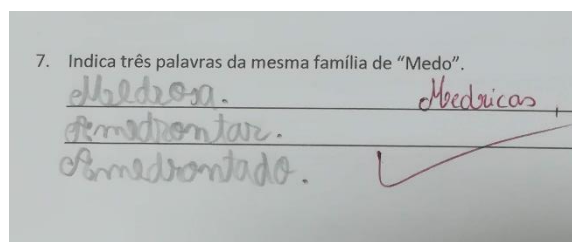 7. Indica três palavras da mesma família de “Medo”.
Medrosa. Medricas
Amedrontar.
Amedrontado.